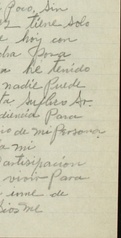 Goso, Sin
tiene solo
hoy con
Gosa
he tenido
nadie Puede
Suplico Sr.
diencia Para
de mi Persona
mi
articipación
vivir Para
de
Dios me